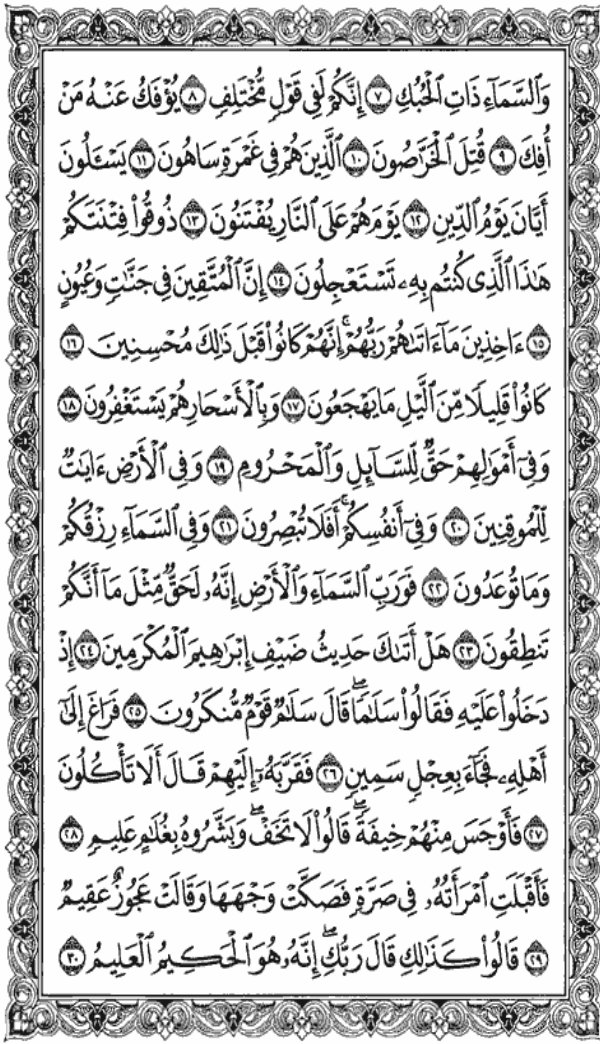 وَٱلسَّمَآءِ ذَاتِ ٱلْحُبُكِ ٧ إِنَّكُمْ لَفِى قَوْلٍ مُّخْتَلِفٍ ٨ يُؤْفَكُ عَنْهُ مَنْ
أُفِكَ ٩ قُتِلَ ٱلْخَرَّٰصُونَ ١٠ ٱلَّذِينَ هُمْ فِى غَمْرَةٍ سَاهُونَ ١١ يَسْـَٔلُونَ
أَيَّانَ يَوْمُ ٱلدِّينِ ١٢ يَوْمَ هُمْ عَلَى ٱلنَّارِ يُفْتَنُونَ ١٣ ذُوقُوا۟ فِتْنَتَكُمْ
هَٰذَا ٱلَّذِى كُنتُم بِهِۦ تَسْتَعْجِلُونَ ١٤ إِنَّ ٱلْمُتَّقِينَ فِى جَنَّٰتٍ وَعُيُونٍ
١٥ ءَاخِذِينَ مَآ ءَاتَىٰهُمْ رَبُّهُمْ ۚ إِنَّهُمْ كَانُوا۟ قَبْلَ ذَٰلِكَ مُحْسِنِينَ ١٦
كَانُوا۟ قَلِيلًا مِّنَ ٱلَّيْلِ مَا يَهْجَعُونَ ١٧ وَبِٱلْأَسْحَارِ هُمْ يَسْتَغْفِرُونَ ١٨
وَفِىٓ أَمْوَٰلِهِمْ حَقٌّ لِّلسَّآئِلِ وَٱلْمَحْرُومِ ١٩ وَفِى ٱلْأَرْضِ ءَايَٰتٌ
لِّلْمُوقِنِينَ ٢٠ وَفِىٓ أَنفُسِكُمْ ۚ أَفَلَا تُبْصِرُونَ ٢١ وَفِى ٱلسَّمَآءِ رِزْقُكُمْ
وَمَا تُوعَدُونَ ٢٢ فَوَرَبِّ ٱلسَّمَآءِ وَٱلْأَرْضِ إِنَّهُۥ لَحَقٌّ مِّثْلَ مَآ أَنَّكُمْ
تَنطِقُونَ ٢٣ هَلْ أَتَىٰكَ حَدِيثُ ضَيْفِ إِبْرَٰهِيمَ ٱلْمُكْرَمِينَ ٢٤ إِذْ
دَخَلُوا۟ عَلَيْهِ فَقَالُوا۟ سَلَٰمًا ۖ قَالَ سَلَٰمٌ قَوْمٌ مُّنكَرُونَ ٢٥ فَرَاغَ إِلَىٰٓ
أَهْلِهِۦ فَجَآءَ بِعِجْلٍ سَمِينٍ ٢٦ فَقَرَّبَهُۥٓ إِلَيْهِمْ قَالَ أَلَا تَأْكُلُونَ
٢٧ فَأَوْجَسَ مِنْهُمْ خِيفَةً ۖ قَالُوا۟ لَا تَخَفْ ۖ وَبَشَّرُوهُ بِغُلَٰمٍ عَلِيمٍ ٢٨
فَأَقْبَلَتِ ٱمْرَأَتُهُۥ فِى صَرَّةٍ فَصَكَّتْ وَجْهَهَا وَقَالَتْ عَجُوزٌ عَقِيمٌ
٢٩ قَالُوا۟ كَذَٰلِكِ قَالَ رَبُّكِ ۖ إِنَّهُۥ هُوَ ٱلْحَكِيمُ ٱلْعَلِيمُ ٣٠